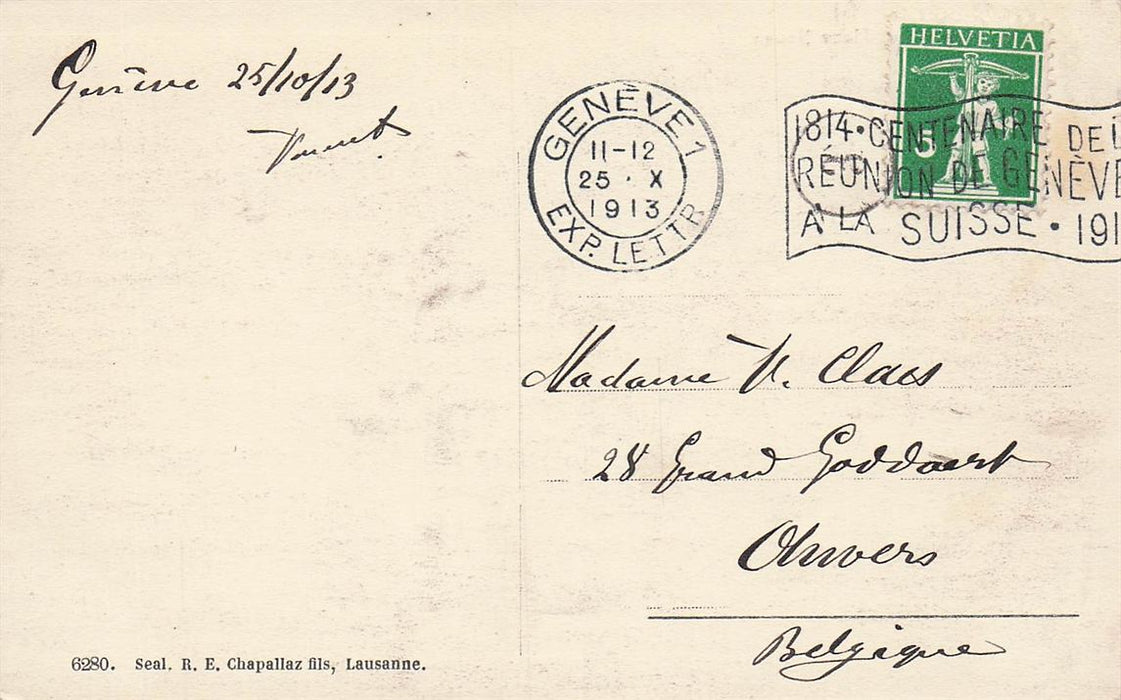 Genève 25/10/13
GENÈVE 1
11-12
25 · X
1913
EXP. LETTR
HELVETIA
5
1814 · CENTENAIRE DE L
RÉUNION DE GENÈVE
A LA SUISSE · 191
Madame V. Claes
28 Grand Goddaert
Anvers
Belgique
6280. Seal. R. E. Chapallaz fils, Lausanne.